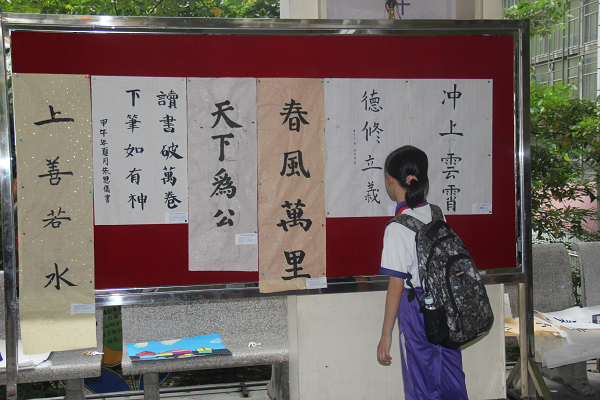 上善若水
讀書破萬卷
下筆如有神
甲午年夏月朱思儀書
天下為公
春風萬里
德修立義
冲上雲霄